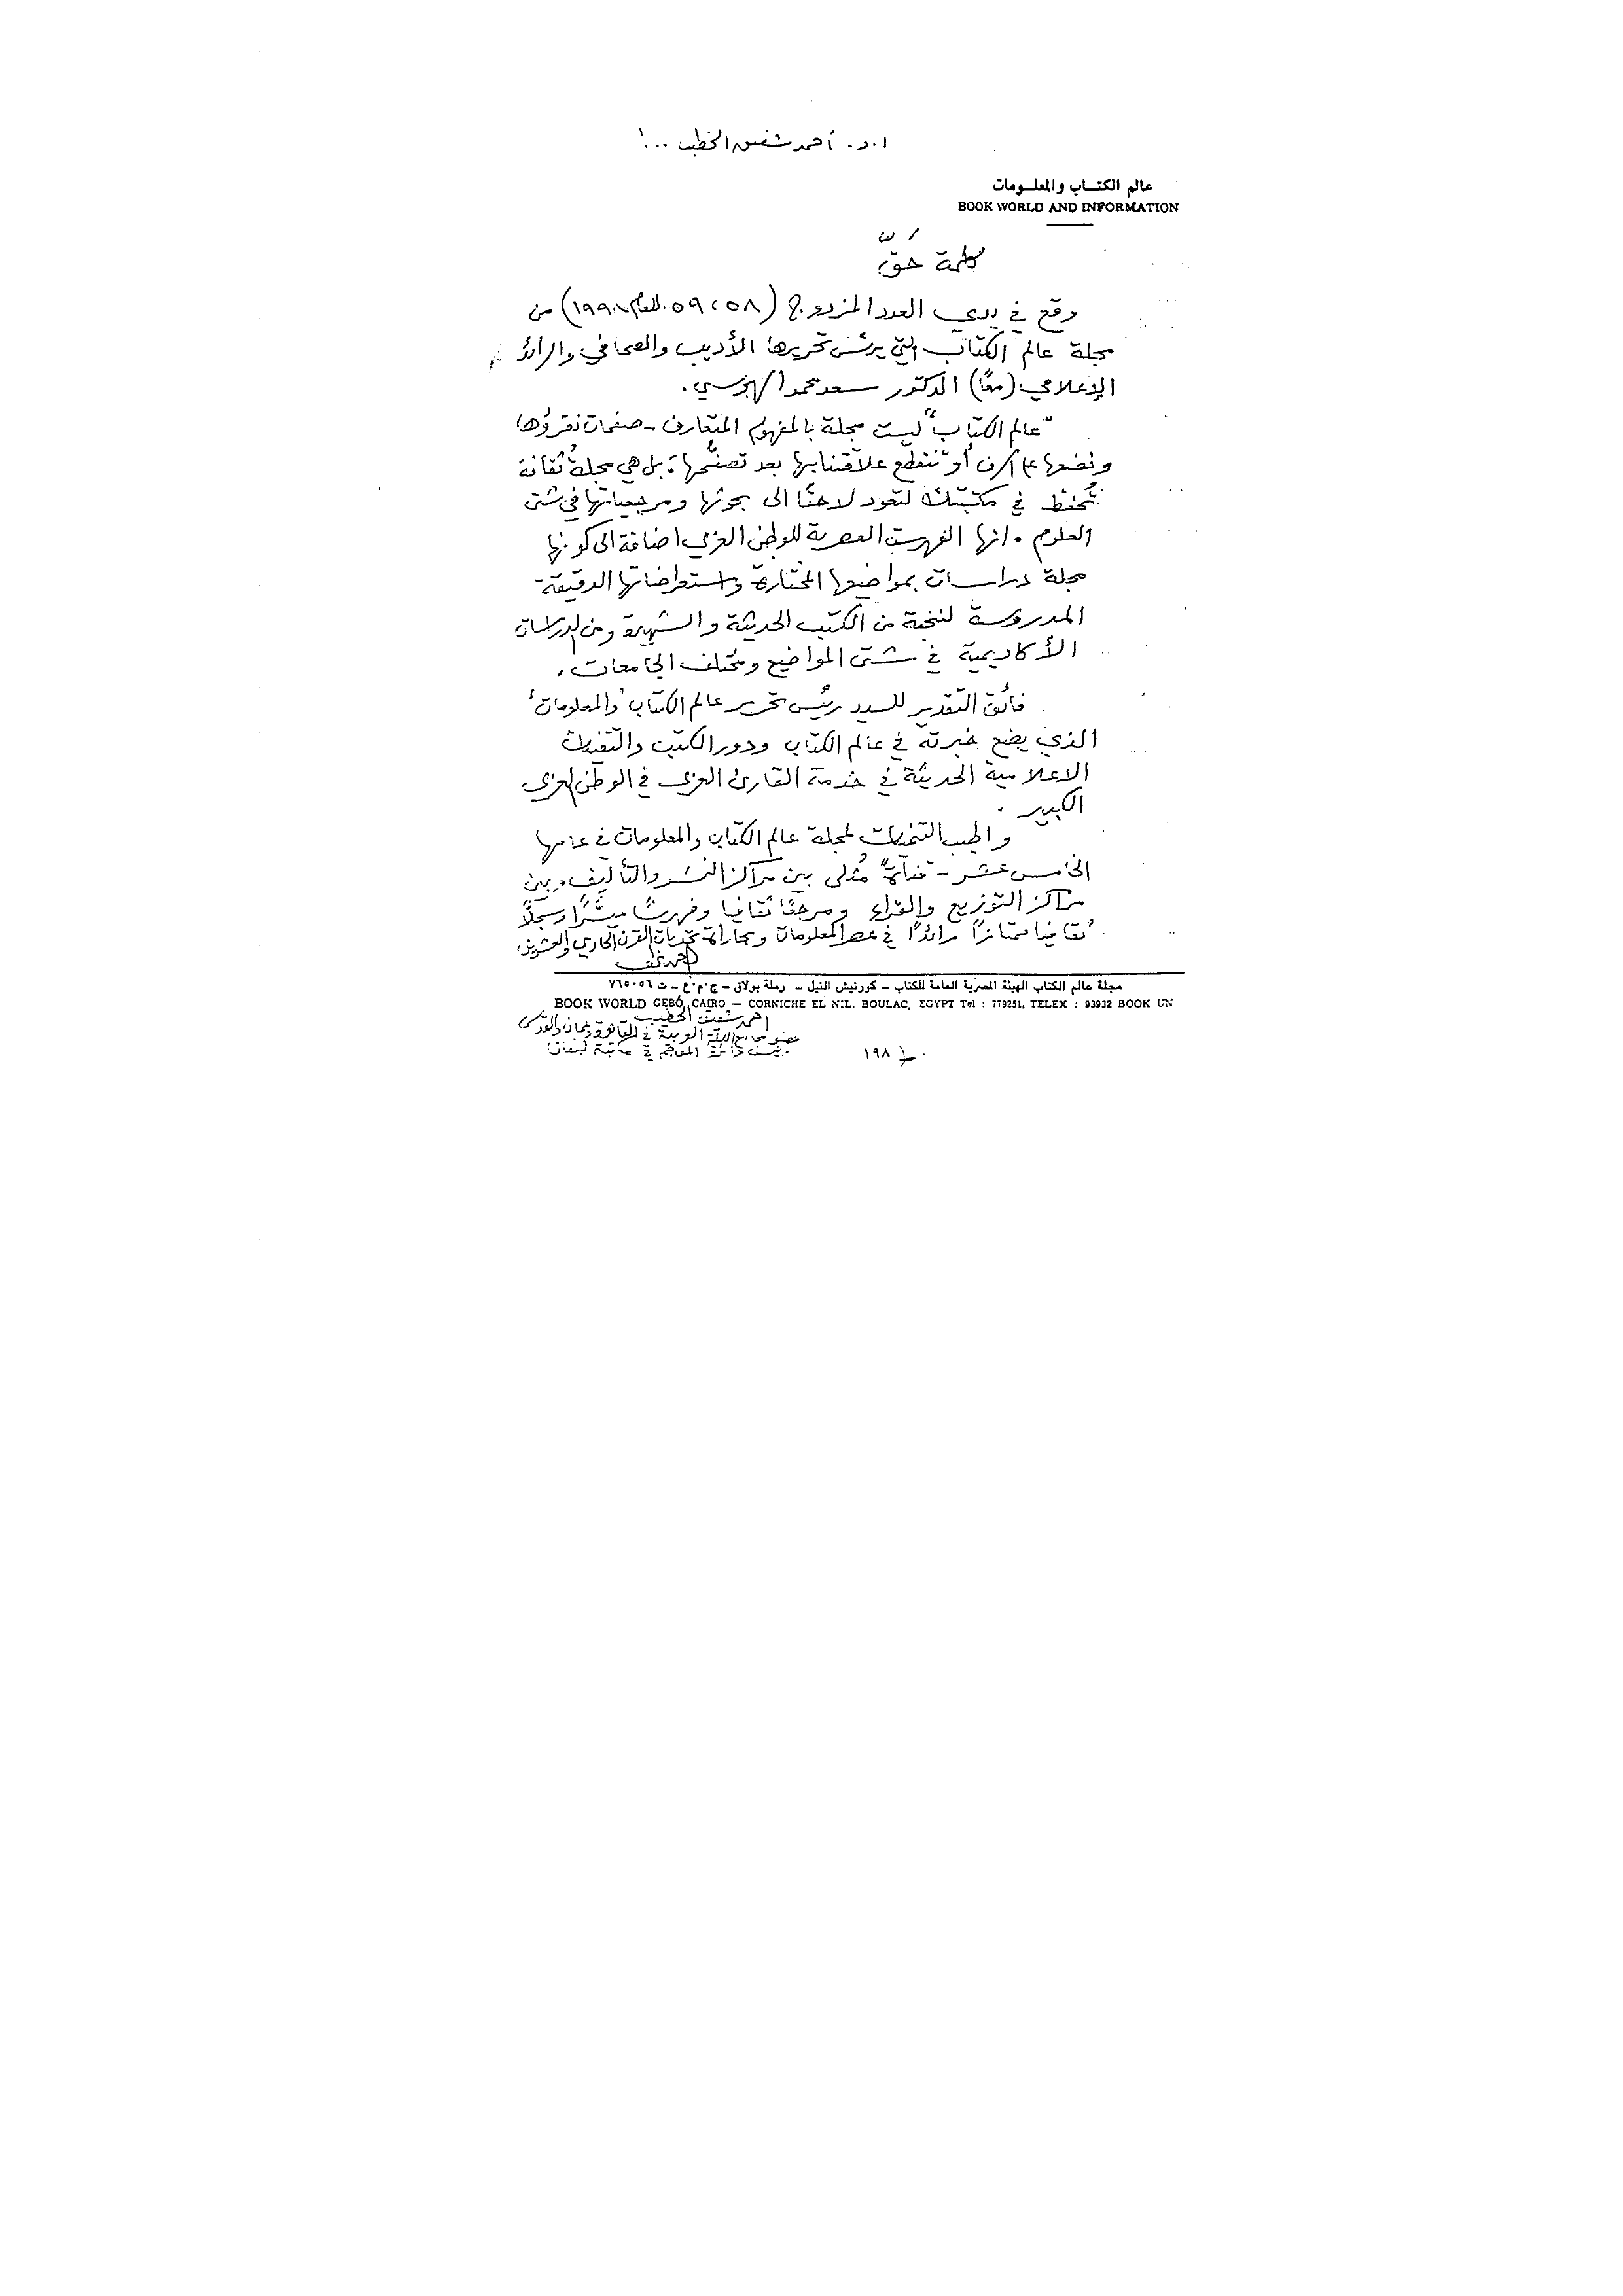 ا.د. أحمد شفيق الخطيب ...!
عالم الكتـــاب والمعلــومات
BOOK WORLD AND INFORMATION
كلمة حقّ
وقع في يدي العدد المزدوج (٥٨، ٥٩ للعام ١٩٩٨) من
مجلة عالم الكتاب التي يرئس تحريرها الأديب والصحافي والرائد
الإعلامي (معًا) الدكتور سعد محمد الهجرسي.
"عالم الكتاب" ليست مجلة بالمفهوم المتعارف - صفحات نقرؤها
ونضعها على الرف أو تنقطع علاقتنا بها بعد تصفّحها؛ بل هي مجلة ثقافة
تُحفظ في مكتبتك لتعود لاحقًا الى بحوثها ومرجعياتها في شتى
العلوم. انها الفهرست العصرية للوطن العربي اضافة الى كونها
مجلة دراسات بمواضيعها المختارة واستعراضاتها الدقيقة
المدروسة لنخبة من الكتب الحديثة والشهيرة ومن الدراسات
الأكاديمية في شتى المواضيع ومختلف الجامعات.
فائق التقدير للسيد رئيس تحرير عالم الكتاب 'والمعلومات'
الذي يضع خبرته في عالم الكتاب ودور الكتب والتقنيات
الاعلامية الحديثة في خدمة القارئ العربي في الوطن العربي
الكبير.
واطيب التمنيات لمجلة عالم الكتاب والمعلومات في عامها
الخامس عشر - قناةً مُثلى بين مراكز النشر والتأليف وبين
مراكز التوزيع والقراء ومرجعًا ثقافيا وفهرسًا ميسَّرًا وسجلًّا
ثقافيا ممتازًا رائدًا في عصر المعلومات ومجاراة تحديات القرن الحادي والعشرين.
مجلة عالم الكتاب الهيئة المصرية العامة للكتاب – كورنيش النيل – رملة بولاق – ج.م.ع – ت ٧٦٥٠٥٦
BOOK WORLD GEBO, CAIRO — CORNICHE EL NIL. BOULAC, EGYPT Tel : 779251, TELEX : 93932 BOOK UN
احمد شفيق الخطيب
عضو مجامع اللغة العربية في القاهرة وعمان والقدس
رئيس دائرة المعاجم في مكتبة لبنان
١٩٨